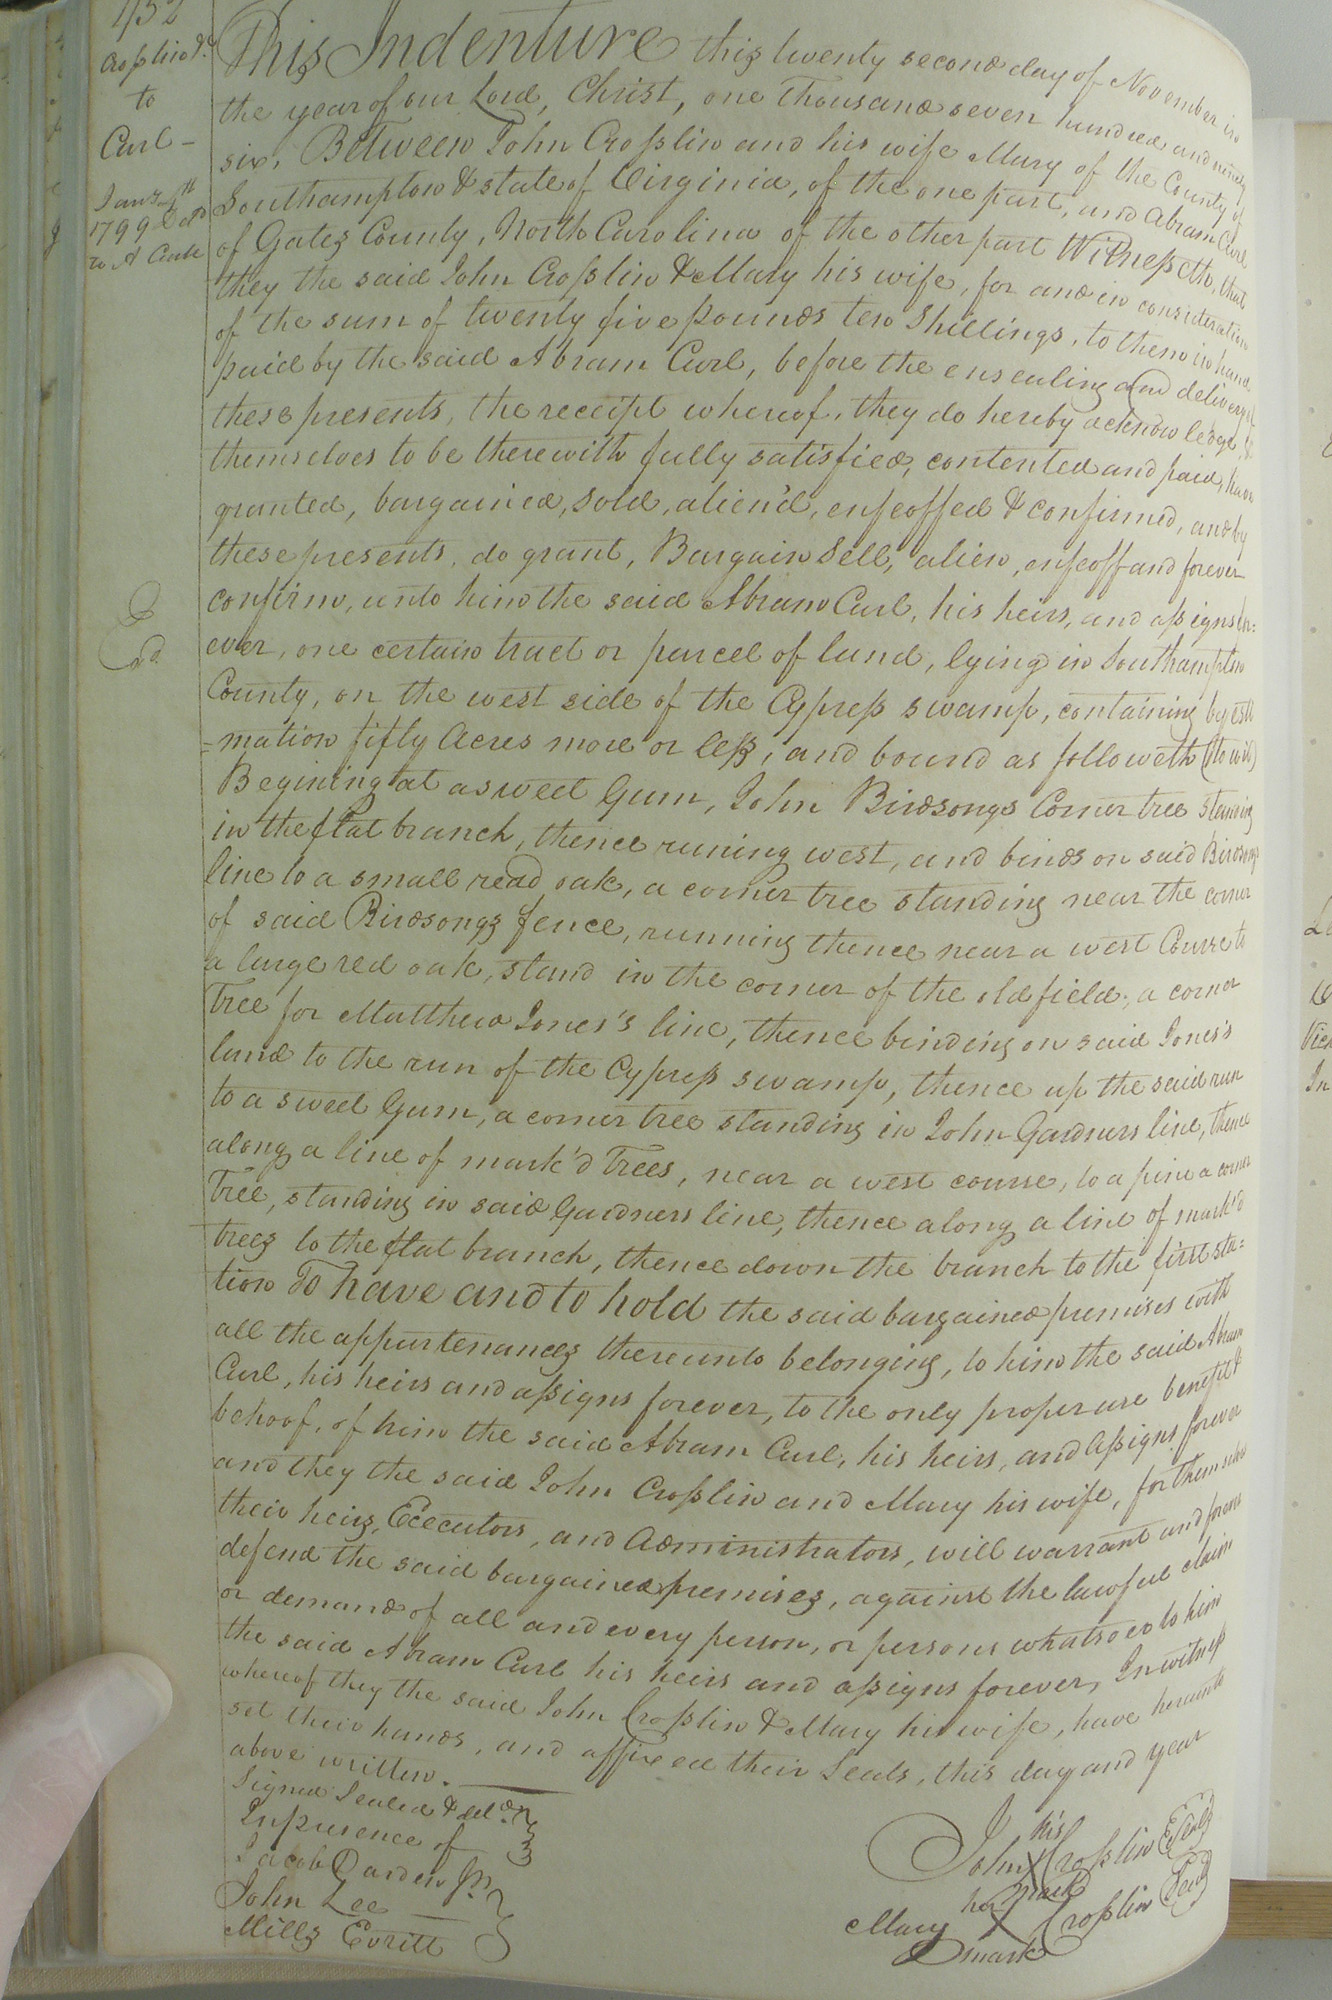 Crosslin &c
to
Curl –
Jany 4th
1799 Deld
to A Curle
Exd
This Indenture this twenty second day of November in
the year of our Lord, Christ, one Thousand seven hundred and ninety
six, Between John Crosslin and his wife Mary of the County of
Southampton & state of Virginia, of the one part, and Abram Curl
of Gates County, North Carolina of the other part Witnesseth, that
they the said John Crosslin & Mary his wife, for and in consideration
of the sum of twenty five pounds ten Shillings, to them in hand
paid by the said Abram Curl, before the ensealing and delivery of
these presents, the receipt whereof, they do hereby acknowledge, &
themselves to be therewith fully satisfied, contented and paid, have
granted, bargained, sold, alien'd, enfeoffed & confirmed, and by
these presents, do grant, Bargain Sell, alien, enfeoff and forever
confirm, unto him the said Abram Curl, his heirs, and assigns for=
ever, one certain tract or parcel of land, lying in Southampton
County, on the west side of the Cypress swamp, containing by esti
=mation fifty Acres more or less, and bound as followeth (to wit)
Begining at a sweet Gum, John Birdsongs Corner tree standing
in the flat branch, thence runing west, and binds on said Birdsongs
line to a small read oak, a corner tree standing near the corner
of said Birdsongs fence, running thence near a west Course to
a large red oak, stand in the corner of the old field, a corner
Tree for Matthew Jones's line, thence binding on said Jones's
land to the run of the Cypress swamp, thence up the said run
to a sweet Gum, a corner tree standing in John Gardners line, thence
along a line of mark'd Trees, near a west course, to a pine a corner
Tree, standing in said Gardners line, thence along a line of mark'd
trees to the flat branch, thence down the branch to the first sta=
tion To have and to hold the said bargained premises with
all the appurtenances thereunto belonging, to him the said Abram
Curl, his heirs and assigns forever, to the only proper use benefit &
behoof, of him the said Abram Curl, his heirs, and Assigns forever
and they the said John Crosslin and Mary his wife, for themselves
their heirs, Executors, and Administrators, will warrant and forever
defend the said bargained premises, against the lawful claim
or demand of all and every person, or persons whatsoever to him
the said Abram Curl his heirs and assigns forever, In witness
whereof they the said John Crosslin & Mary his wife, have hereunto
set their hands, and affixed their Seals, this day and year
above written.
Signed Sealed & deld
In presence of
Jacob Darden Jr
John Lee
Mills Evritt
his
John X Crosslin Seal
mark
her
Mary X Crosslin Seal
mark